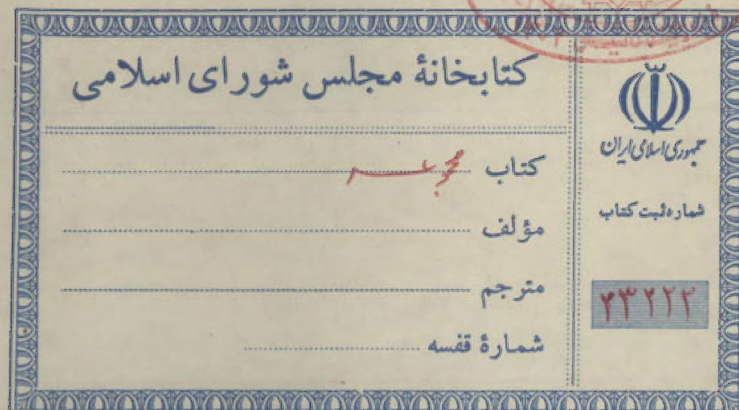 کتابخانهٔ مجلس شورای اسلامی
کتاب مجموعه
مؤلف
مترجم
شمارهٔ قفسه
جمهوری اسلامی ایران
شماره ثبت کتاب
۲۳۲۲۲